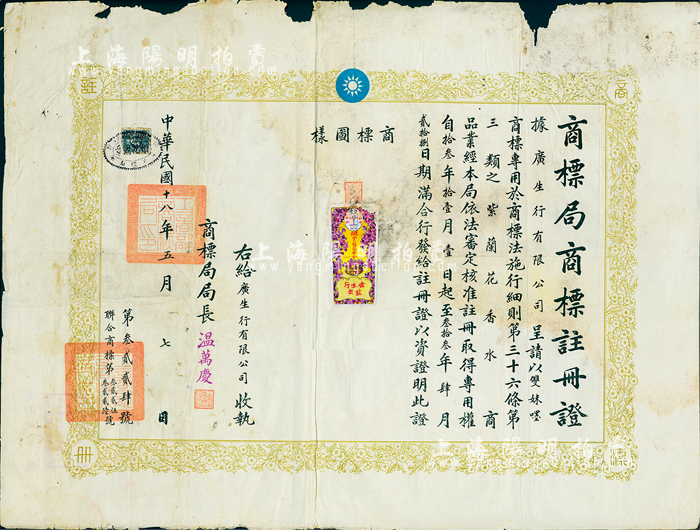 商標局商標註冊證
據廣生行有限公司呈請以雙妹嘜
商標專用於商標法施行細則第三十六條第
三類之紫蘭花香水商
品業經本局依法審定核准註冊取得專用權
自拾叁年拾壹月壹日起至叁拾叁年肆月
貳拾捌日期滿合行發給註冊證以資證明此證
商標圖樣
廣生行
右給廣生行有限公司收執
商標局局長溫萬慶
中華民國十八年五月七日
第叁貳貳肆號
聯合商標第叁貳貳伍叁貳貳陸號
商
標
註
冊
上海陽明拍賣
www.yangmingauction.com
上海陽明拍賣
www.yangmingauction.com
上海陽明拍賣
www.yangmingauction.com